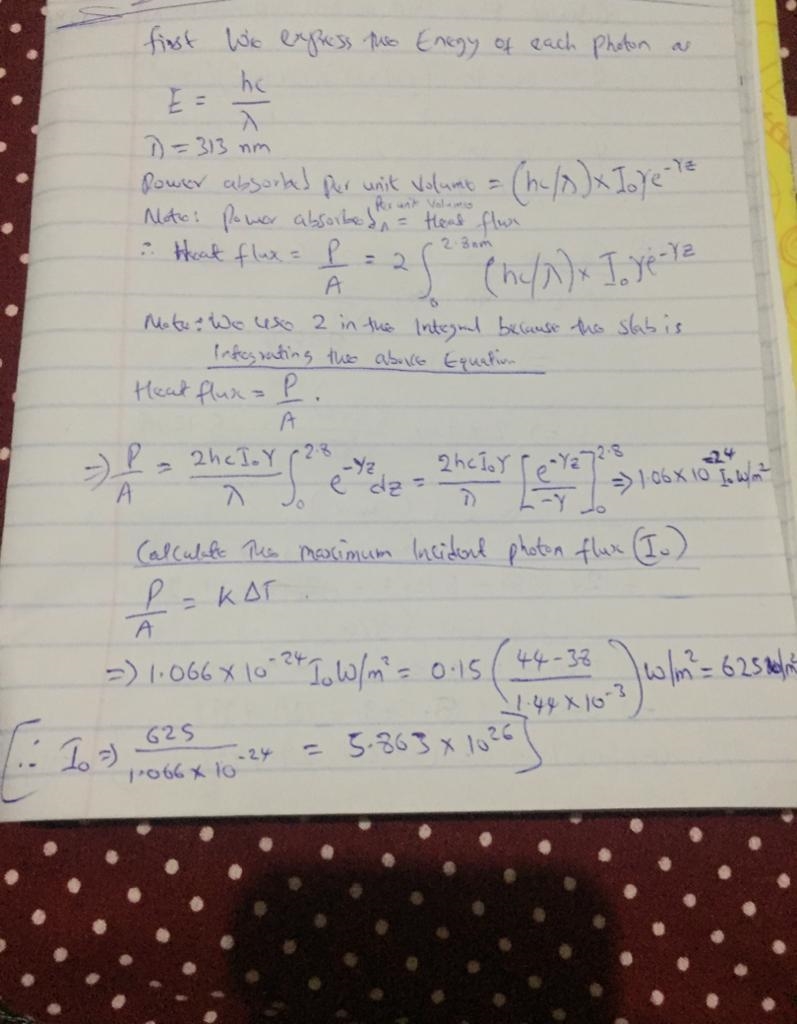 first We express the Enegy of each photon as
E = hc/λ
λ = 313 nm
Power absorbed per unit volume = (hc/λ) × I₀γe^-γz
Note: Power absorbed per unit volume = Heat flux
∴ Heat flux = P/A = 2∫₀^2.8mm (hc/λ) × I₀γe^-γz
Note: We use 2 in the Integral because the slab is
Integrating the above Equation
Heat flux = P/A.
⇒ P/A = 2hcI₀γ/λ ∫₀^2.8 e^-γz dz = 2hcI₀γ/λ [e^-γz/-γ]₀^2.8 ⇒ 1.06 × 10^-24 I₀ W/m²
Calculate The maximum Incident photon flux (I₀)
P/A = K ΔT.
⇒ 1.066 × 10^-24 I₀ W/m² = 0.15 (44-38/1.44 × 10^-3) W/m² = 625 W/m²
[∴ I₀ ⇒ 625/1.066 × 10^-24 = 5.863 × 10^26]